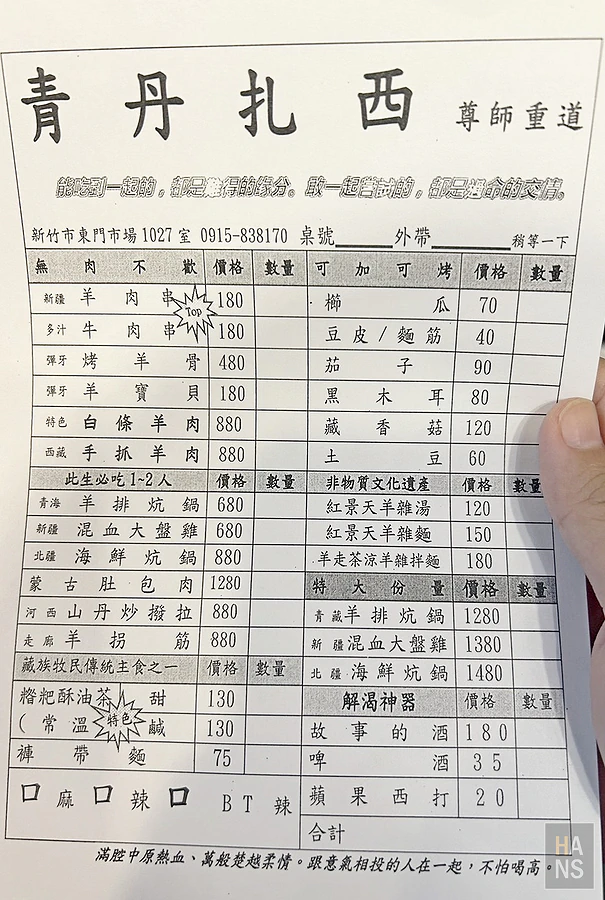 青丹扎西 尊師重道
能吃到一起的，都是難得的緣分。敢一起嘗試的，都是過命的交情。
新竹市東門市場1027室 0915-838170 桌號 外帶 稍等一下
無肉不歡 價格 數量
新疆 羊肉串 Top 180
多汁 牛肉串 180
彈牙 烤羊骨 480
彈牙 羊寶貝 180
特色 白條羊肉 880
西藏 手抓羊肉 880
此生必吃1~2人 價格 數量
青海 羊排炕鍋 680
新疆 混血大盤雞 680
北疆 海鮮炕鍋 880
蒙古肚包肉 1280
河西 山丹炒撥拉 880
走廊 羊拐筋 880
藏族牧民傳統主食之一 價格 數量
糌粑酥油茶 甜 130
(常溫 特色 鹹 130
褲帶麵 75
麻 辣 BT辣
可加可烤 價格 數量
櫛瓜 70
豆皮/麵筋 40
茄子 90
黑木耳 80
藏香菇 120
土豆 60
非物質文化遺產 價格 數量
紅景天羊雜湯 120
紅景天羊雜麵 150
羊走茶涼羊雜拌麵 180
特大份量 價格 數量
青藏 羊排炕鍋 1280
新疆 混血大盤雞 1380
北疆 海鮮炕鍋 1480
解渴神器 價格 數量
故事的酒 180
啤酒 35
蘋果西打 20
合計
滿腔中原熱血、萬般楚越柔情。跟意氣相投的人在一起，不怕喝高。
HANS